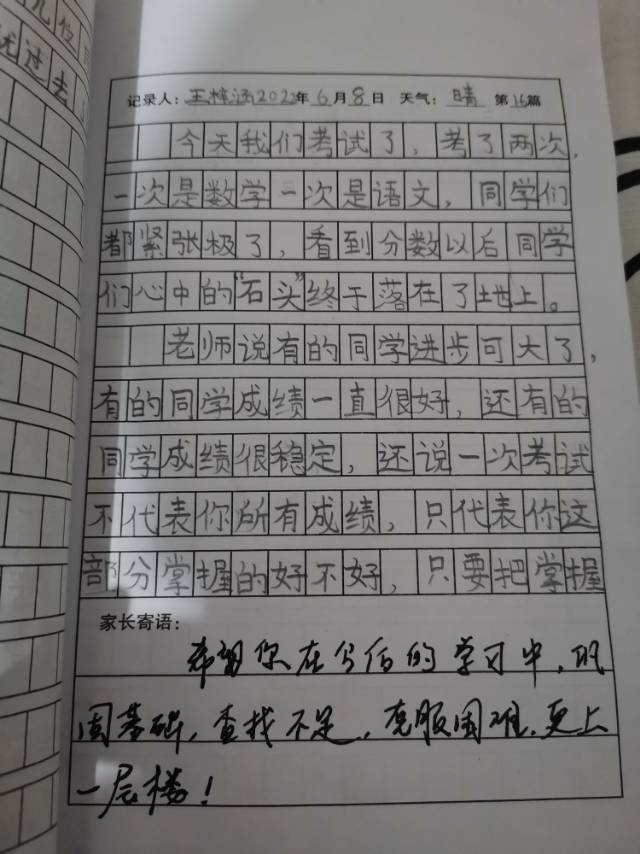 九位
过去
记录人：王梓涵2022年6月8日 天气：晴 第16篇
今天我们考试了，考了两次，
一次是数学一次是语文，同学们
都紧张极了，看到分数以后同学
们心中的“石头”终于落在了地上。
老师说有的同学进步可大了，
有的同学成绩一直很好，还有的
同学成绩很稳定，还说一次考试
不代表你所有成绩，只代表你这
部分掌握的好不好，只要把掌握
家长寄语：
希望你在今后的学习中，巩
固基础，查找不足，克服困难，更上
一层楼！